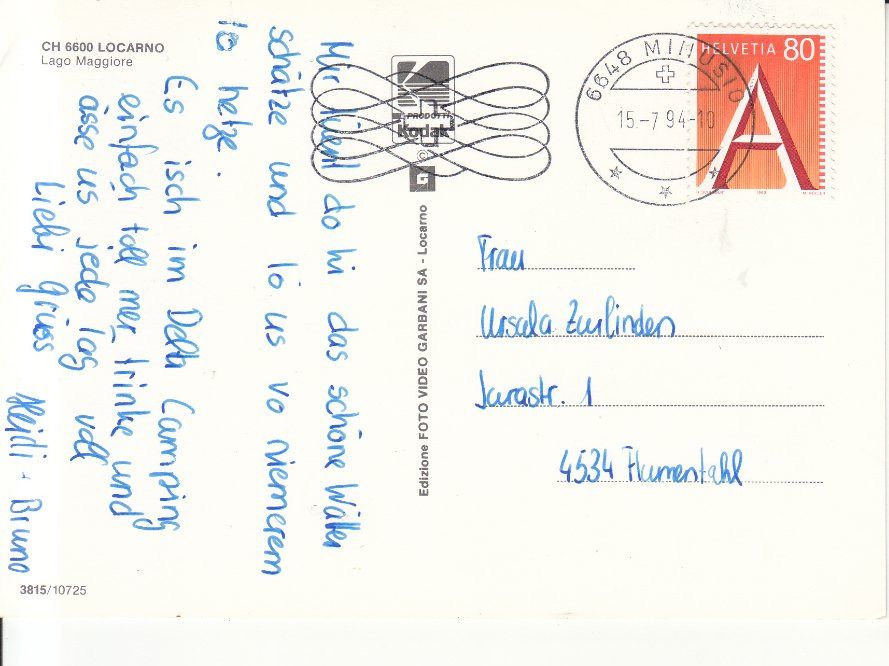 CH 6600 LOCARNO
Lago Maggiore
Mir liend do hi das schöne Wätter
schätze und lö us vo niemerem
lo hetze.
Es isch im Delta Camping
einfach toll mer trinke und
ässe us jede Tag voll
Liebi grüess
Heidi + Bruno
PRODOTTI
Kodak
©
G
Edizione FOTO VIDEO GARBANI SA - Locarno
6648 MINUSIO
15.-7 94-10
HELVETIA 80
A
1993
Frau
Ursula Zurlinden
Jurastr. 1
4534 Flumentahl
3815/10725